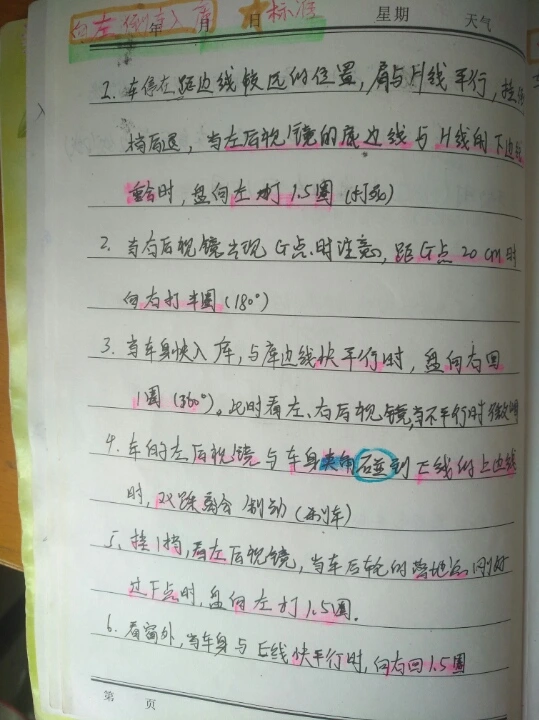 向左倒车入库 ★标准
年 月 日 星期 天气
1. 车停在距边线较远的位置，肩与H线平行，挂倒
档后退，当左后视镜的底边线与H线的下边线
重合时，盘向左打1.5圈（打死）
2. 当右后视镜出现G点时注意，距G点20cm时
向右打半圈（180°）
3. 当车身快入库，与库边线快平行时，盘向右回
1圈（360°）。此时看左、右后视镜，当不平行时
4. 车的左后视镜与车身夹角碰到E线的上边线
时，双踩离合/制动（刹车）
5. 挂1档，看左后视镜，当车后轮的落地点刚好
过F点时，盘向左打1.5圈。
6. 看窗外，当车身与E线快平行时，向右回1.5圈
第 页